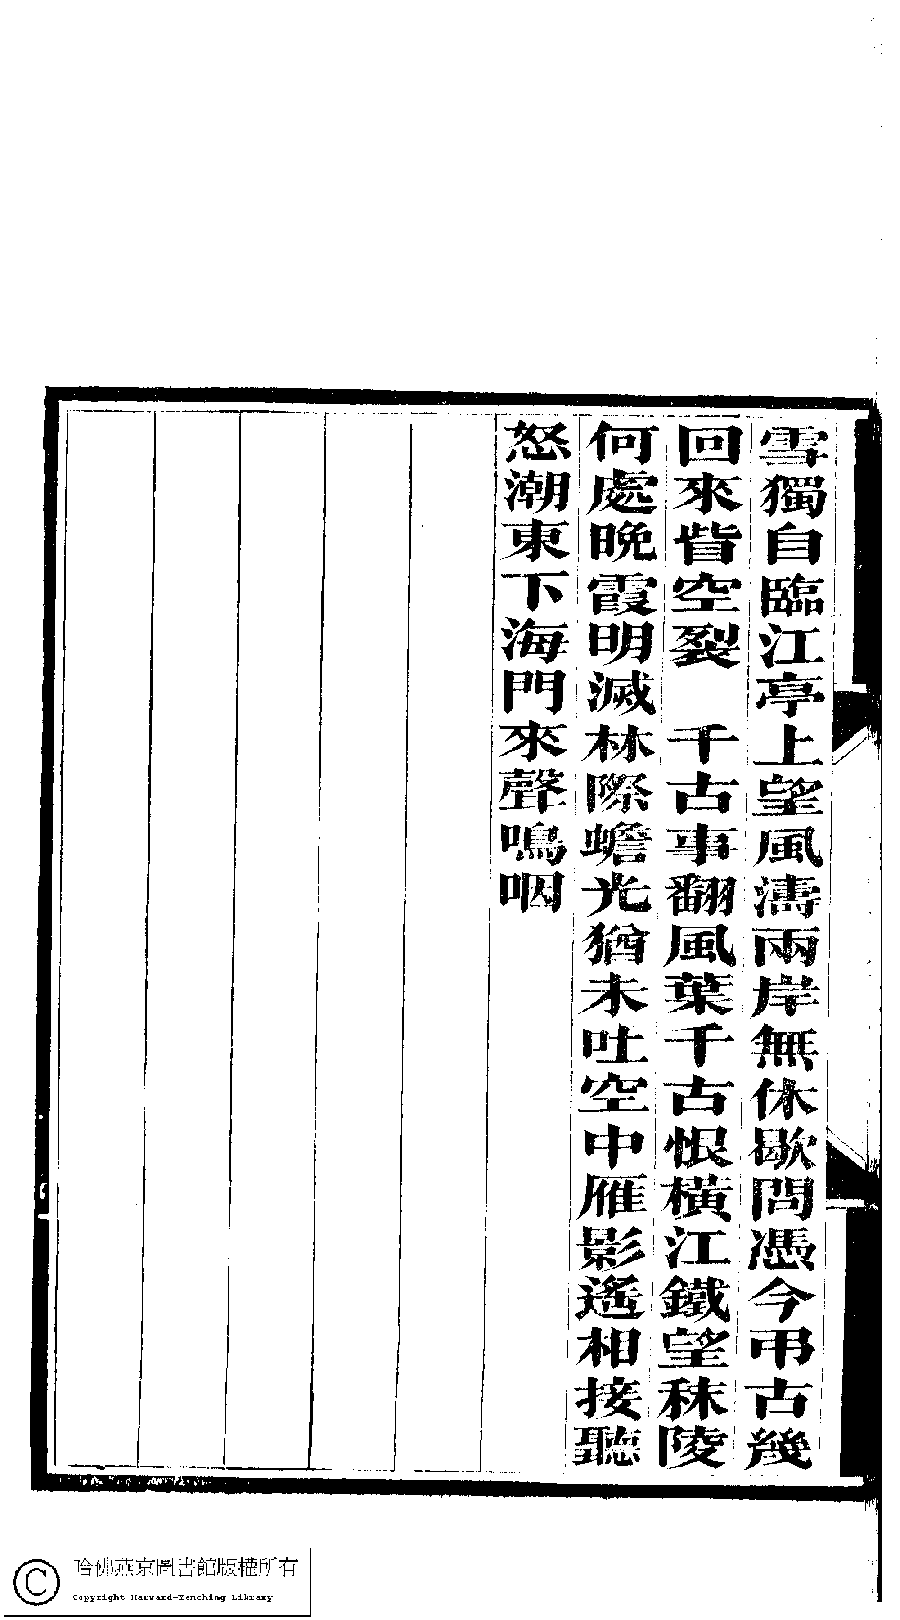 雪獨自臨江亭上望風濤兩岸無休歇問憑今弔古幾
回來眥空裂　千古事翻風葉千古恨橫江鐵望秣陵
何處晚霞明滅林際蟾光猶未吐空中雁影遙相接聽
怒潮東下海門來聲鳴咽
哈佛燕京圖書館版權所有
Copyright Harvard-Yenching Library